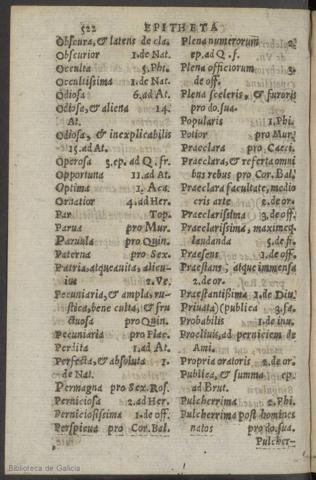 522 EPITHETA
Obscura, & latens de cla.
Obscurior 1.de Nat.
Occulta 5.Phi.
Occultissima 1.de Nat.
Odiosa 6.ad At.
Odiosa, & aliena 14.
At.
Odiosa, & inexplicabilis
15.ad At.
Operosa 3.ep.ad Q.fr.
Opportuna 11.ad At.
Optima 1. Aca.
Ornatior 4.ad Her.
Par Top.
Parua pro Mur.
Paruula pro Quin.
Paterna pro Sex.
Patria, atque auita, alicu-
ius 2.Ve.
Pecuniaria, & ampla, ru-
stica, bene culta, & fru
ctuosa pro Quin.
Pecuniaria pro Flac.
Perdita 1.ad At.
Perfecta, & absoluta 1.
de Nat.
Permagna pro Sex.Ros.
Perniciosa 2.ad Her.
Perniciosissima 1.de off.
Perspicua pro Cor.Bal.
Plena numerorum 2.
ep.ad Q.f.
Plena officiorum 3.
de off.
Plena sceleris, & furoris
pro do.sua.
Popularis 1.Phi.
Potior pro Mur.
Praeclara pro Caeci.
Praeclara, & referta omni
bus rebus pro Cor.Bal.
Praeclara facultate, medio
cris arte 2.de or.
Praeclarissima 3.de off.
Praeclarissima, maximeq.
laudanda 5.de fi.
Praesens 1.de off.
Praestans, atque immensa
2.de or.
Praestantissima 1.de Diu.
Priuata) (publica 3.fa.
Probabilis 1.de inu.
Procliuis, ad perniciem de
Ami.
Propria oratoris 2.de or.
Publica, & summa ep.
ad Brut.
Pulcherrima 2.Phi.
Pulcherrima post homines
natos pro do.sua.
Pulcher-
Biblioteca de Galicia